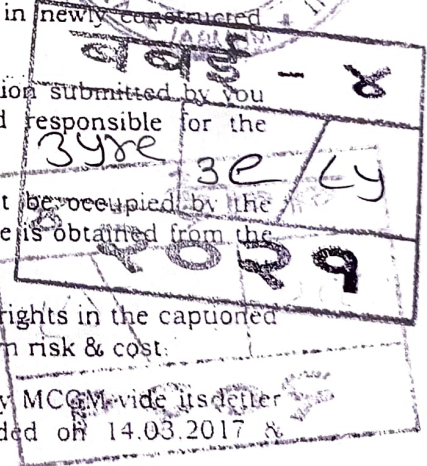 in newly constructed
बबई - ४
ion submitted by you
d responsible for the
be occupied by the
e is obtained from the
२०२१
rights in the captioned
n risk & cost.
y MCGM vide its letter
ded on 14.03.2017 &